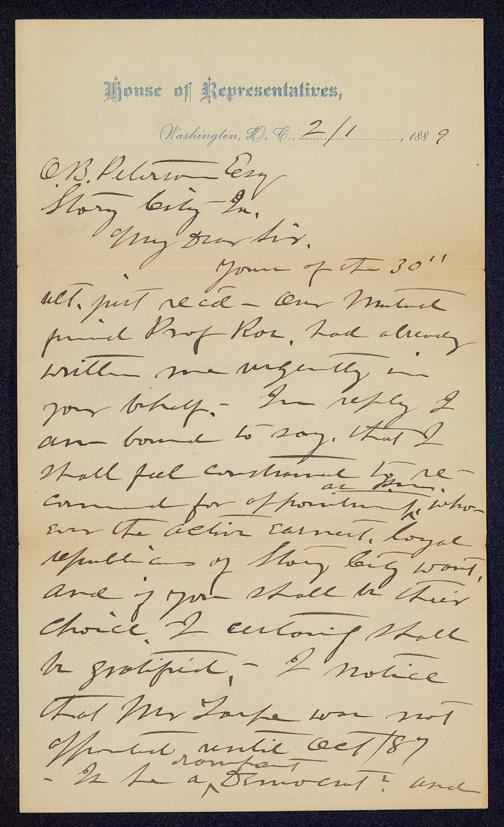 House of Representatives,
Washington, D. C., 2/1, 1889
O. B. Peterson Esq
Story City Ia.
My Dear Sir.
Yours of the 30"
ult. just rec'd – Our Mutual
friend Prof Roe. had already
written me urgently in
your behalf. – In reply I
am bound to say. that I
shall feel constrained to re-
commend for appointment as P.M., who-
ever the active earnest, loyal
republicans of Story City want,
and if you shall be their
choice, I certainly shall
be gratified, – I notice
that Mr was not
appointed until Oct /87
– Is he a rampant Democrat? and